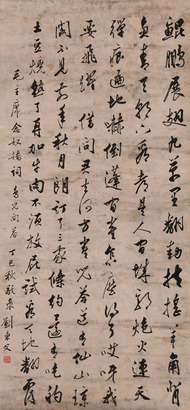 鯤鵬展翅九萬里翻動扶搖羊角
背負青天朝下看都是人間城郭炮火連天
彈痕遍地嚇倒蓬間雀怎麼得了哎呀我
要飛躍借問君去何方雀兒答道有仙山瓊
閣不見前年秋月朗訂了三家條約還有吃的
土豆燒熟了再加牛肉不須放屁試看天地翻覆
毛主席念奴嬌詞鳥兒問答 巳秋敬錄 劉東父